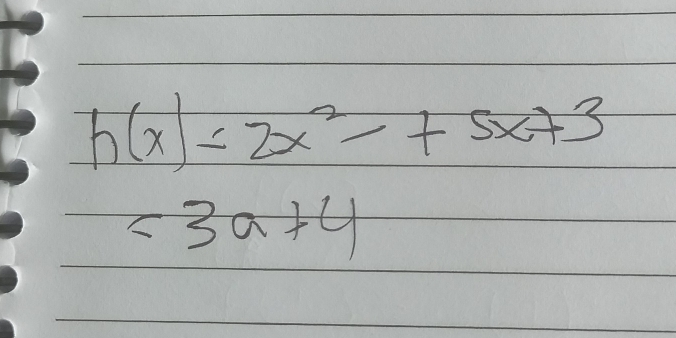 h(x) = 2x² - + 5x+3
= 3a+4